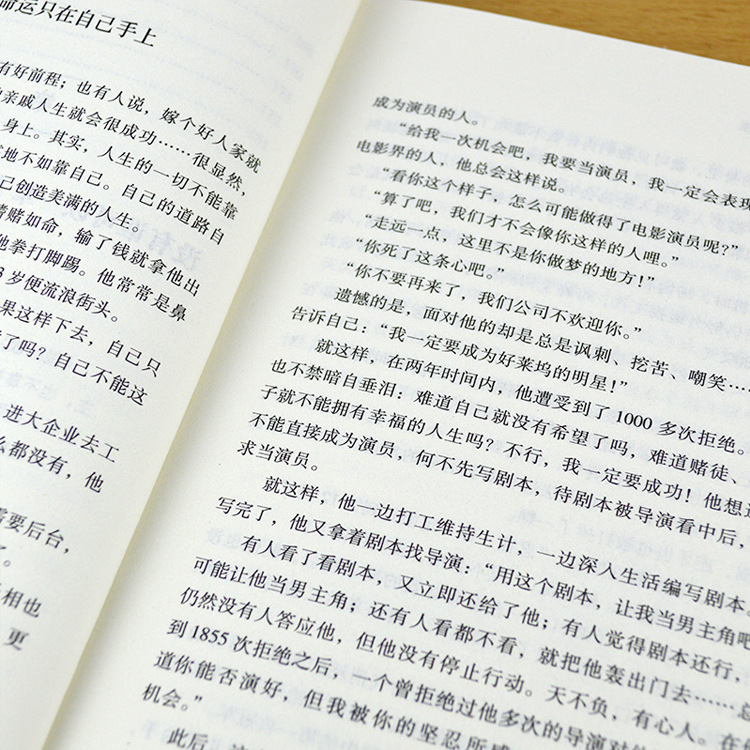 命运只在自己手上
有好前程；也有人说，嫁个好人家就
亲戚人生就会很成功……很显然，
身上。其实，人生的一切不能靠
地不如靠自己。自己的道路自
己创造美满的人生。
赌如命，输了钱就拿他出
他拳打脚踢。他常常是鼻
3岁便流浪街头。
果这样下去，自己只
了吗？自己不能这
进大企业去工
么都没有，他
需要后台，
了。
相也
更
成为演员的人。
“给我一次机会吧，我要当演员，我一定会表现
电影界的人，他总会这样说。
“看你这个样子，怎么可能做得了电影演员呢？”
“算了吧，我们才不会像你这样的人哩。”
“走远一点，这里不是你做梦的地方！”
“你死了这条心吧。”
“你不要再来了，我们公司不欢迎你。”
遗憾的是，面对他的却是总是讽刺、挖苦、嘲笑……
告诉自己：“我一定要成为好莱坞的明星！”
就这样，在两年时间内，他遭受到了1000多次拒绝。
也不禁暗自垂泪：难道自己就没有希望了吗，难道赌徒、
子就不能拥有幸福的人生吗？不行，我一定要成功！他想
不能直接成为演员，何不先写剧本，待剧本被导演看中后，
求当演员。
就这样，他一边打工维持生计，一边深入生活编写剧本。
写完了，他又拿着剧本找导演：“用这个剧本，让我当男主角吧
有人看了看剧本，又立即还给了他；有人觉得剧本还行，
可能让他当男主角；还有人看都不看，就把他轰出门去……总
仍然没有人答应他，但他没有停止行动。天不负，有心人。在
到1855次拒绝之后，一个曾拒绝过他多次的导演对他
道你能否演好，但我被你的坚忍所感
机会。”
此后，这